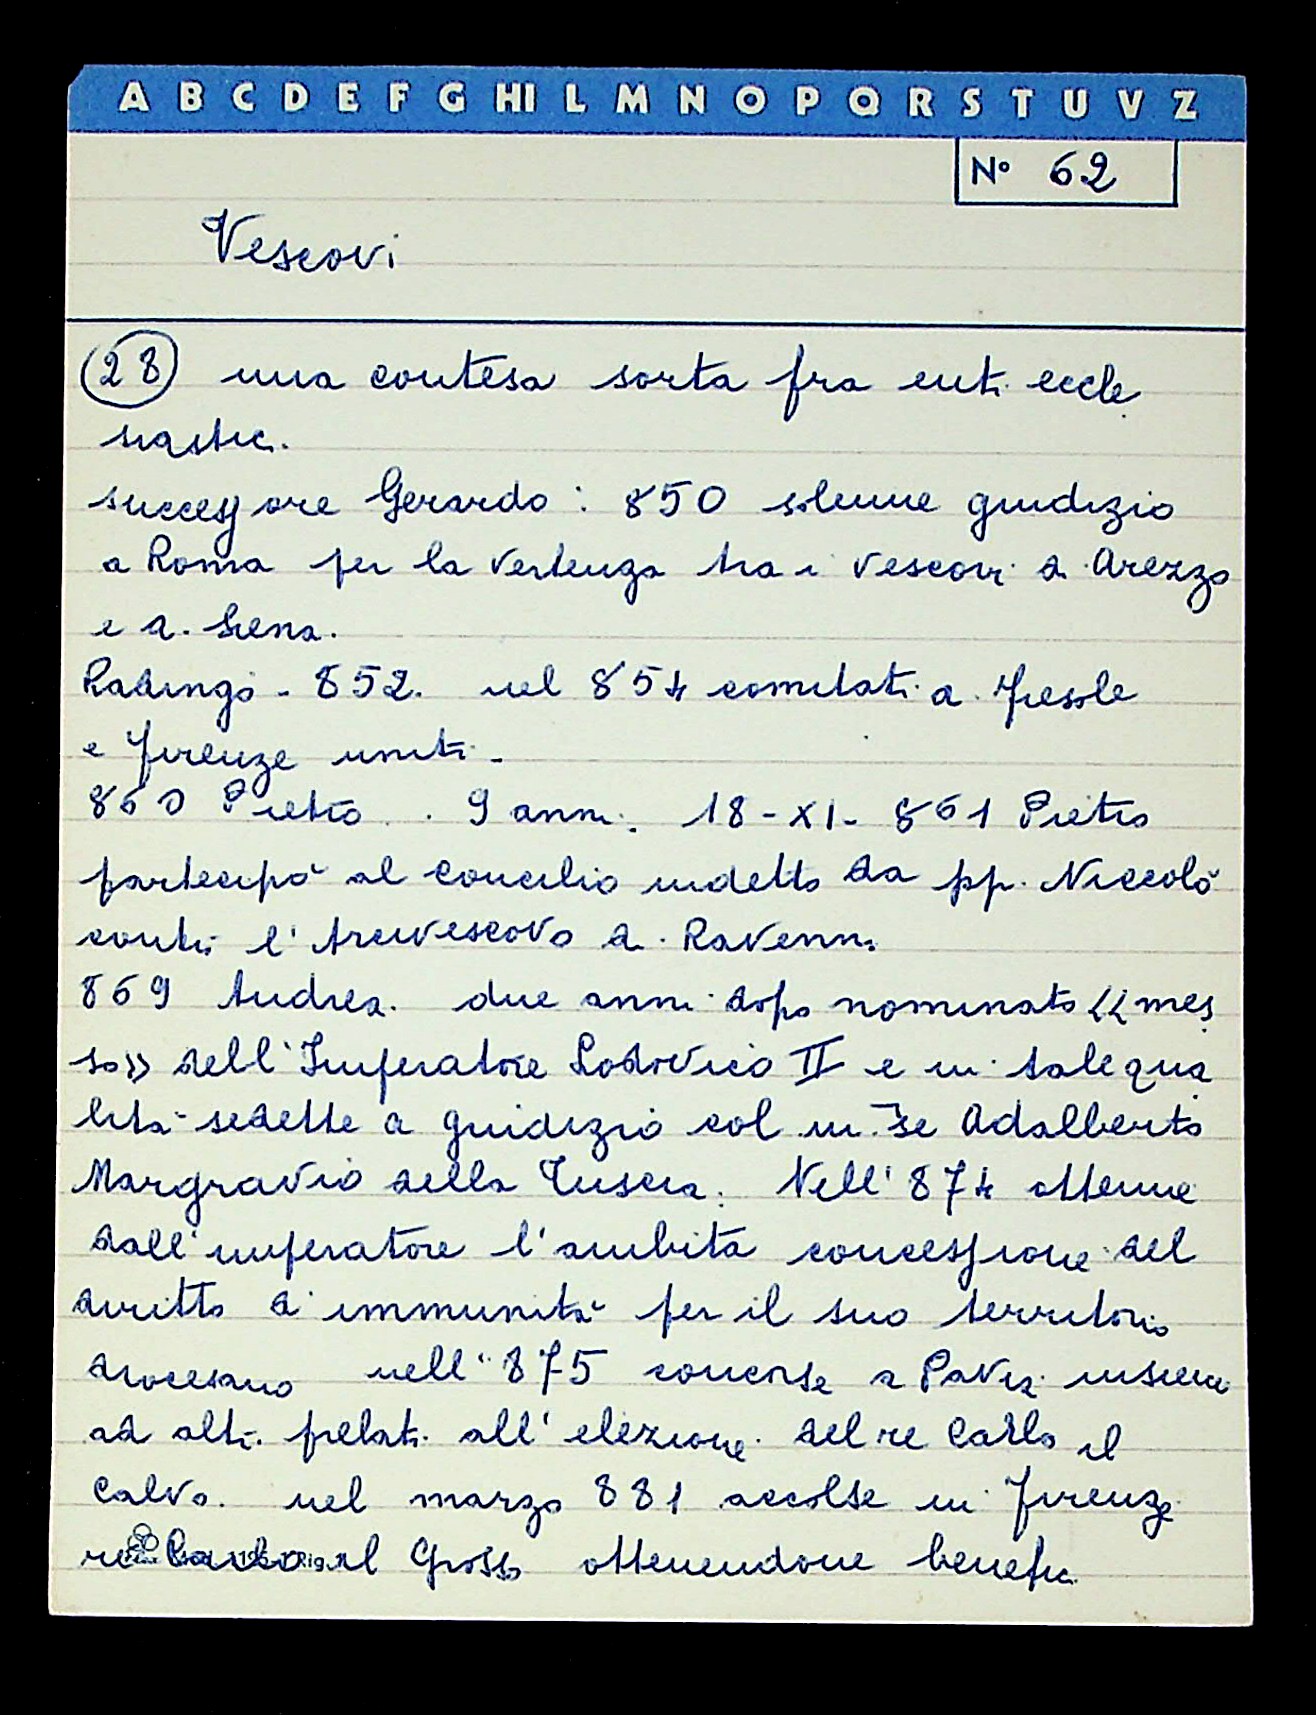 A B C D E F G HI L M N O P Q R S T U V Z
N° 62
Vescovi
28 una contesa sorta fra enti eccle
siastici.
successore Gerardo: 850 solenne giudizio
a Roma per la vertenza tra i vescovi di Arezzo
e di Siena.
Radingo - 852. nel 854 comitati di Fiesole
e Firenze uniti.
860 Pietro . 9 anni. 18-XI- 861 Pietro
partecipò al concilio indetto da pp. Niccolò
contro l'Arcivescovo di Ravenna
869 Andrea. due anni dopo nominato <<mes
so>> dell'Imperatore Lodovico II e in tale qua
lità sedette a giudizio col m.se Adalberto
Margravio della Tuscia. Nell'874 ottenne
dall'imperatore l'ambita concessione del
diritto d'immunità per il suo territorio
diocesano nell'875 concorse a Pavia insieme
ad altri prelati all'elezione del re Carlo il
Calvo. nel marzo 881 accolse in Firenze
re Carlo il Grosso ottenendone benefici